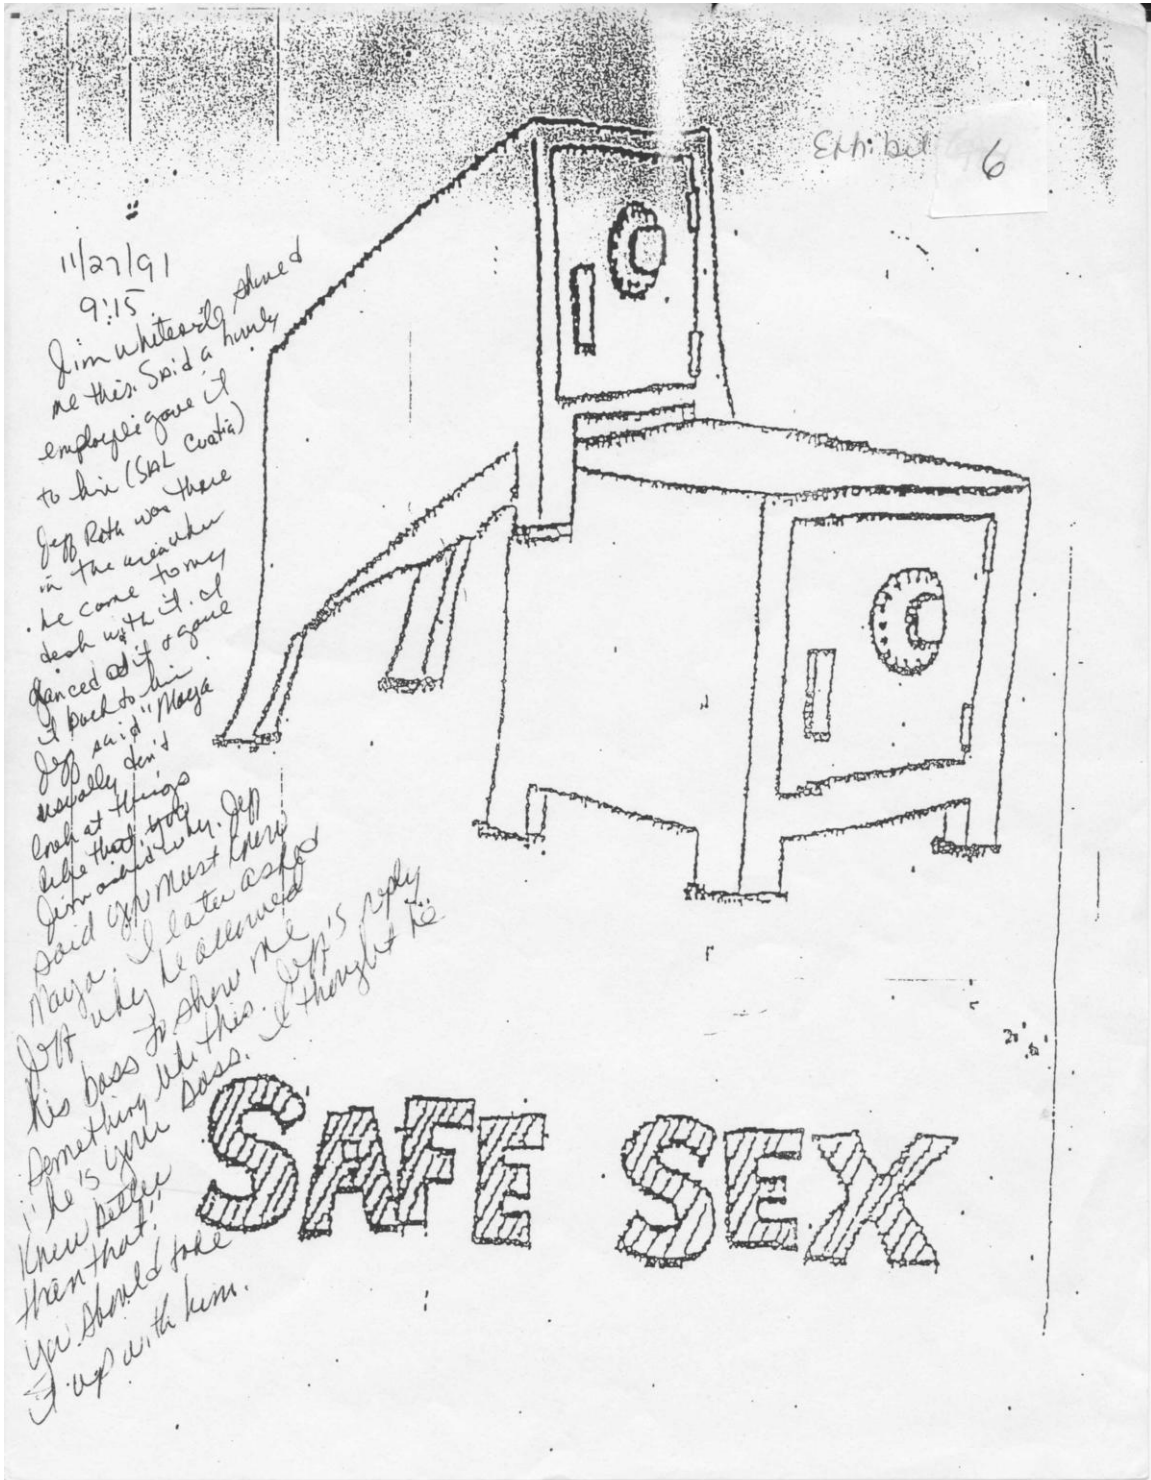 Exhibit 6
11/27/91
9:15
Jim Whiteside showed
me this. Said a hourly
employee gave it
to him (SAL
Jeff Roth was there
in the area when
he come to my
desk with it. I
glanced at it & gave
it back to him
Jeff said "Marja
usually don't
look at things
like that,
Jim asked why. Jeff
said you must know
Marja. I later asked
Jeff why he allowed
his boss to show me
something like this. Jeff's reply
"he's your boss. I thought he
knew better
than that."
You should take
it up with him.
SAFE SEX